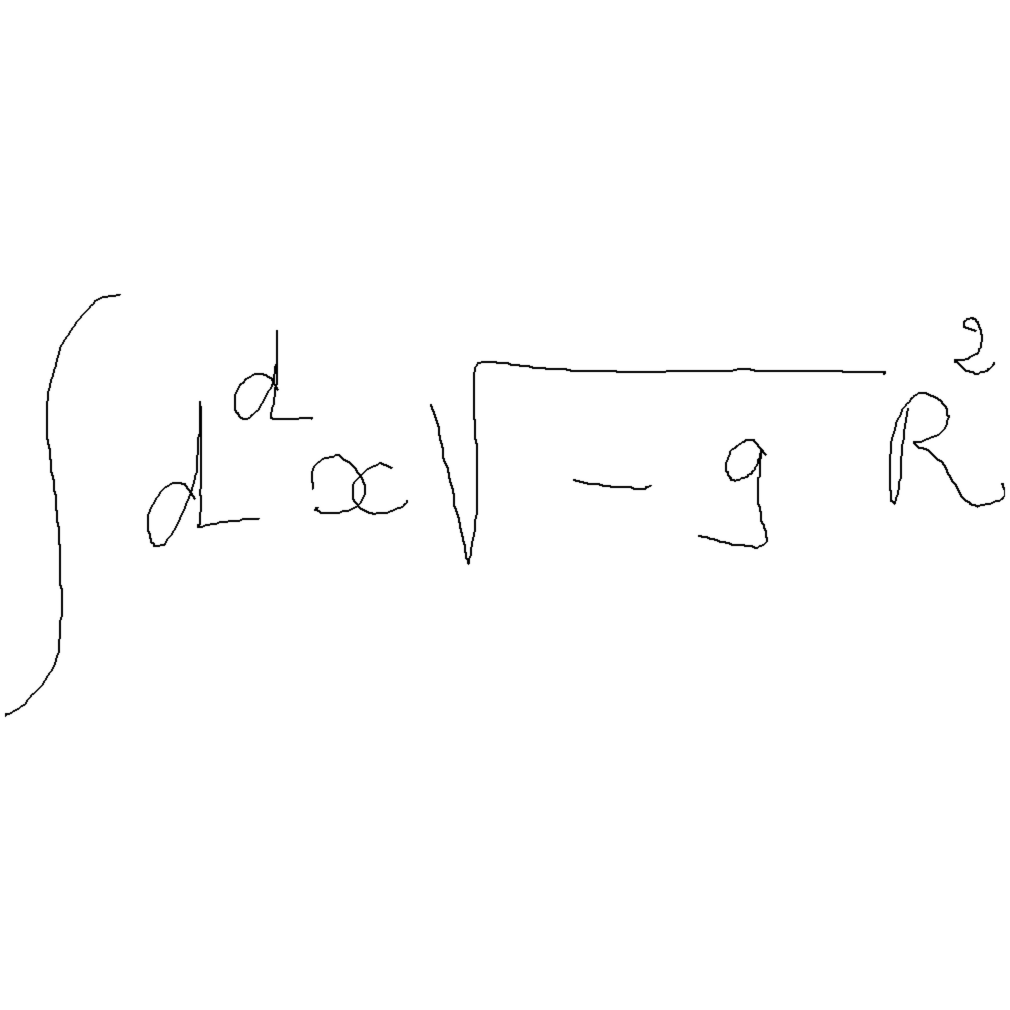 ∫ d^d x √(-g) R^2